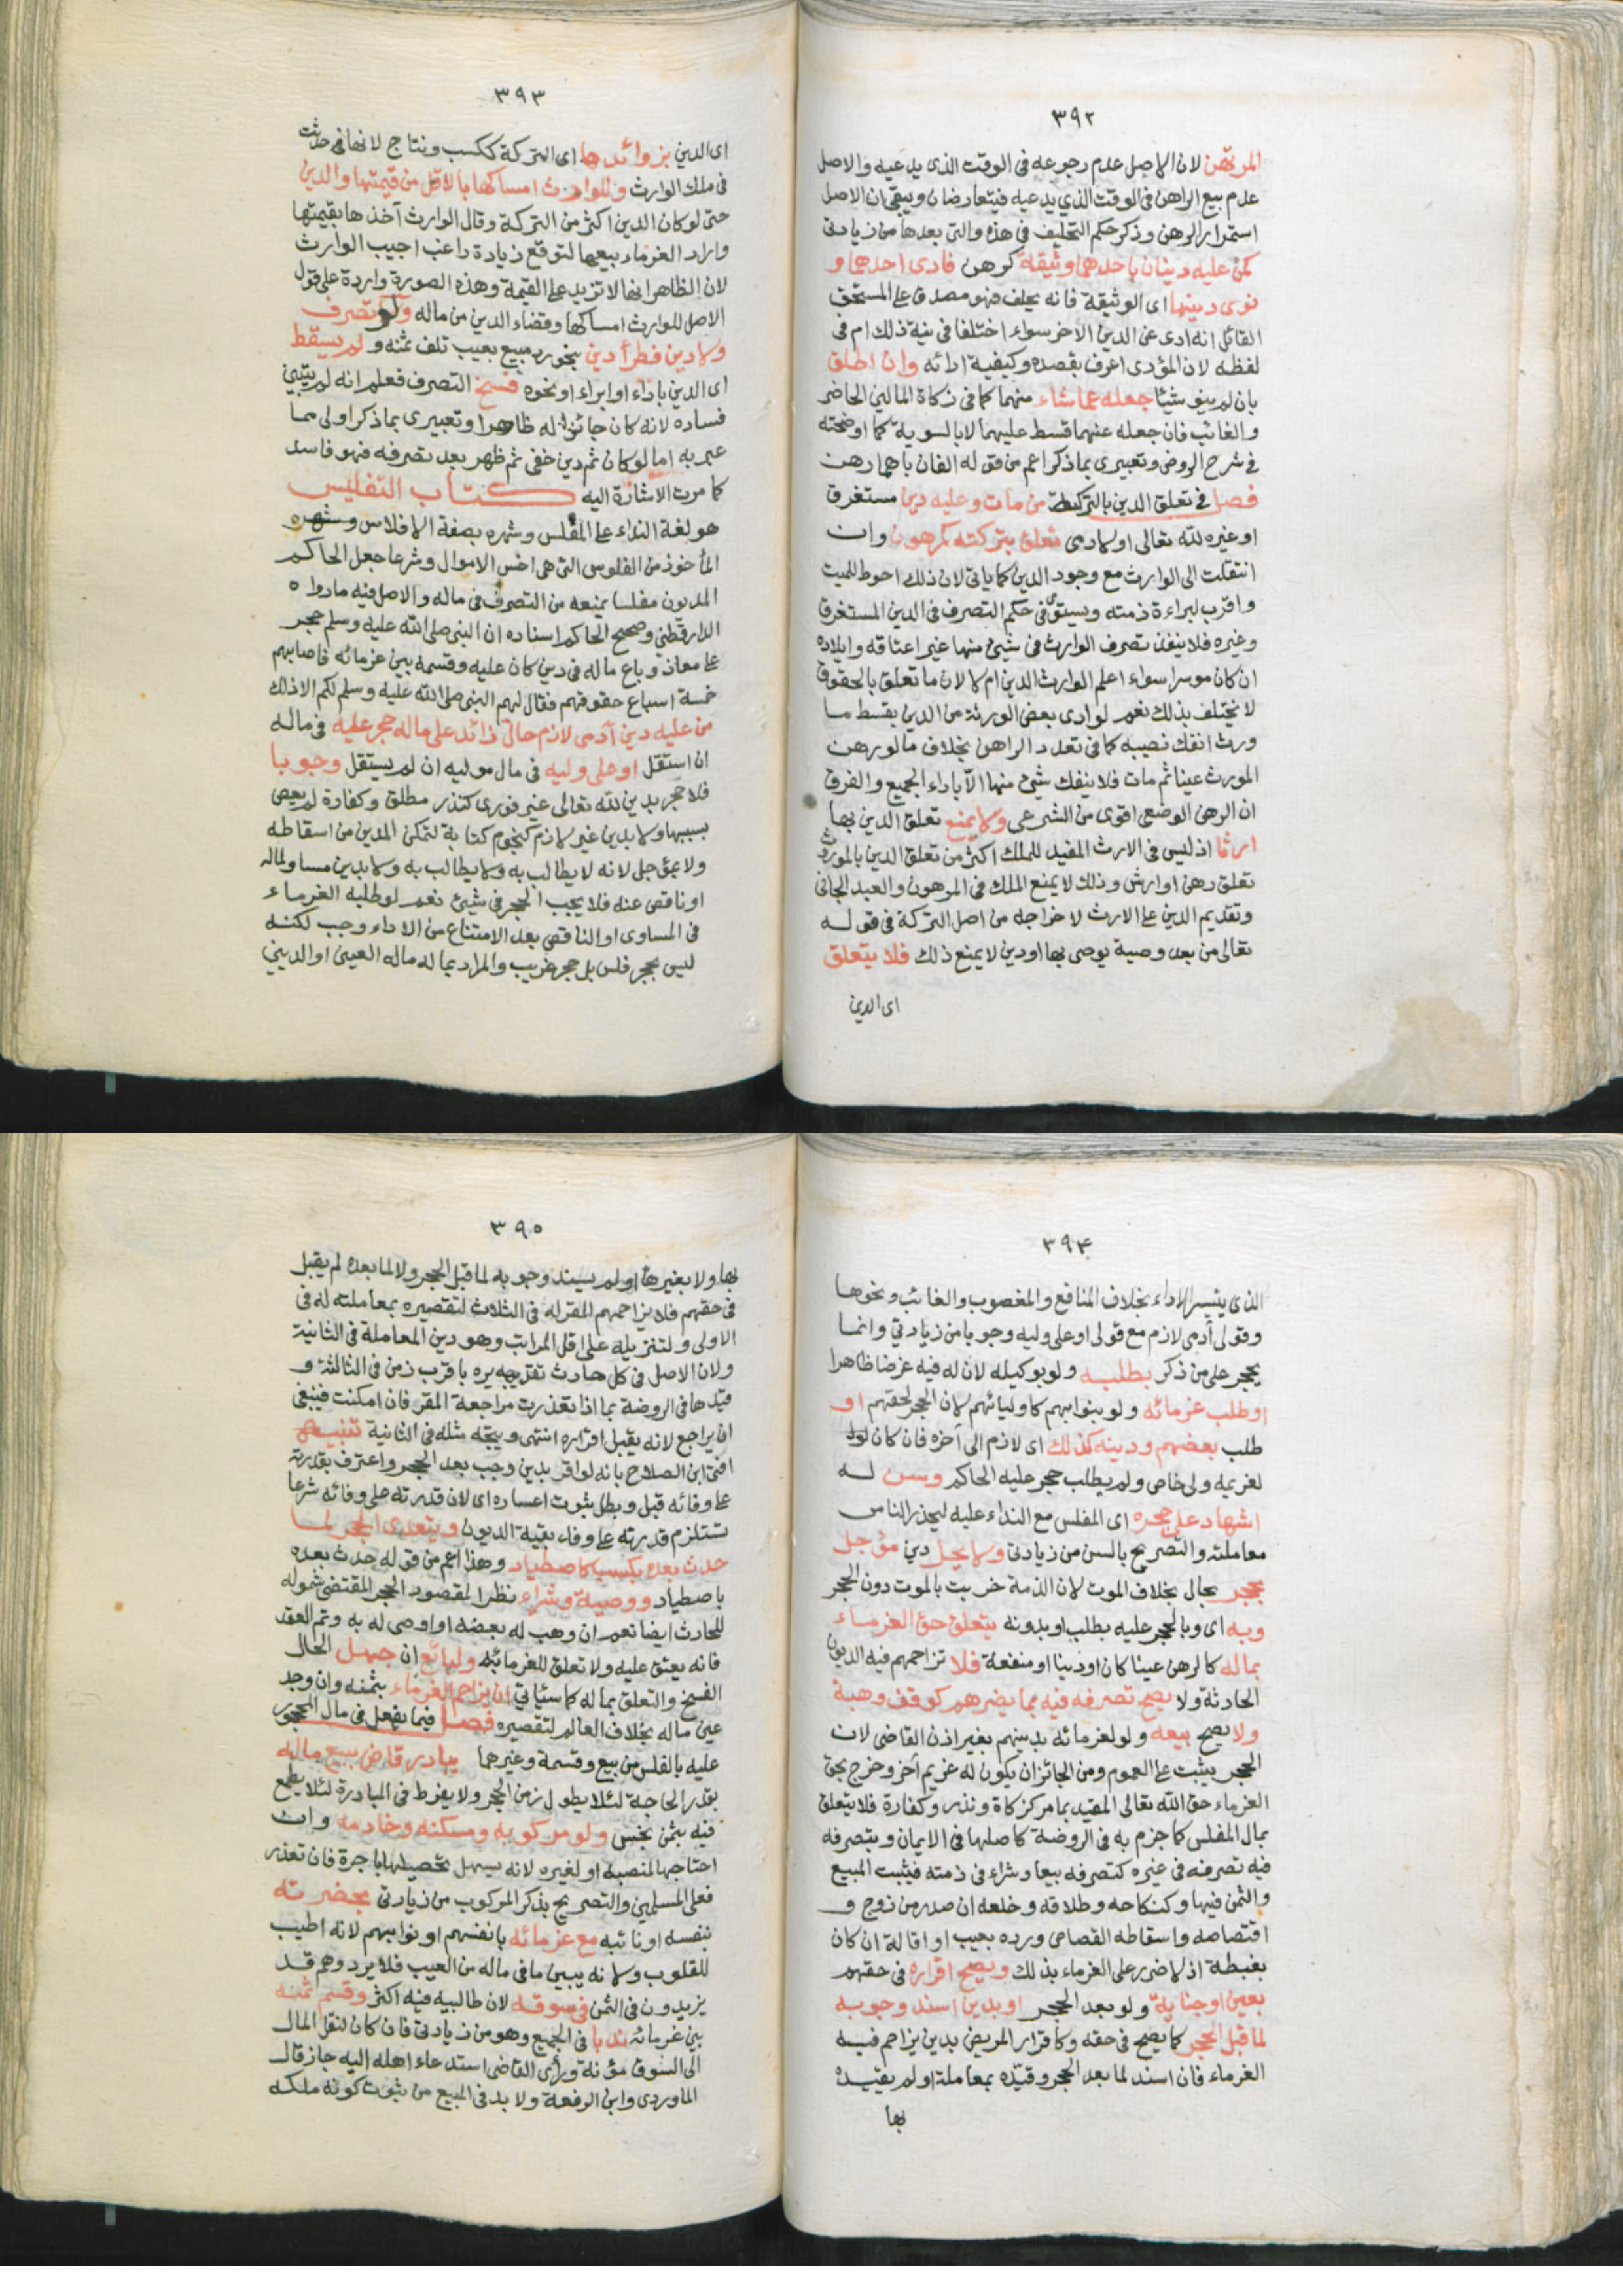 ٣٩٢
المرتهن لان الاصل عدم رجوعه فى الوقت الذى يدعيه والاصل
عدم بيع الراهن فى الوقت الذي يدعيه فيتعارضان ويبقى ان الاصل
استمرار الرهن وذكر حكم التحليف فى هذه والتى بعدها من زيادتى
كمن عليه دينان باحدهما وثيقة كرهن فادى احدهما و
نوى دينها اى الوثيقة فانه يحلف فهو مصدق على المستحق
القائل انه ادى عن الدين الاخر سواء اختلفا فى نية ذلك ام فى
لفظه لان المؤدى اعرف بقصده وكيفية ادائه وان اطلق
بان لم ينو شيئا جعله عما شاء منهما كما فى زكاة المالين الحاضر
والغائب فان جعله عنهما قسط عليهما لا بالسوية كما اوضحته
فى شرح الروض وتعبيرى بما ذكر اعم من قوله الفان باحدهما رهن
فصل فى تعلق الدين بالتركة من مات وعليه دين مستغرق
او غيره لله تعالى او لادمى تعلق بتركته كمرهون وان
انتقلت الى الوارث مع وجود الدين كما ياتى لان ذلك احوط للميت
واقرب لبراءة ذمته ويستوى فى حكم التصرف فى الدين المستغرق
وغيره فلا ينفذ تصرف الوارث فى شيئ منها غير اعتاقه وايلاده
ان كان موسرا سواء اعلم الوارث الدين ام لا لان ما تعلق بالحقوق
لا يختلف بذلك نعم لو ادى بعض الورثة من الدين بقسط ما
ورث انفك نصيبه كما فى تعدد الراهن بخلاف ما لو رهن
المورث عينا ثم مات فلا ينفك شيئ منها الا باداء الجميع والفرق
ان الرهن الوضعى اقوى من الشرعى ولا يمنع تعلق الدين بها
ارثا اذ ليس فى الارث المفيد للملك اكثر من تعلق الدين بالمورث
تعلق رهن او ارش وذلك لا يمنع الملك فى المرهون والعبد الجانى
وتقديم الدين على الارث لاخراجه من اصل التركة فى قوله
تعالى من بعد وصية يوصى بها او دين لا يمنع ذلك فلا يتعلق
اى الدين
٣٩٣
اى الدين بزوائدها اى التركة ككسب ونتاج لانها حدثت
فى ملك الوارث وللوارث امساكها بالاقل من قيمتها والدين
حتى لو كان الدين اكثر من التركة وقال الوارث آخذها بقيمتها
واراد الغرماء بيعها لتوقع زيادة راغب اجيب الوارث
لان الظاهر انها لا تزيد على القيمة وهذه الصورة واردة على قول
الاصل للوارث امساكها وقضاء الدين من ماله ولو تصرف
ولا دين فطرأ دين بنحو رد مبيع بعيب تلف ثمنه ولم يسقط
اى الدين باداء او ابراء او نحوه فسخ التصرف فعلم انه لم يتبين
فساده لانه كان جائزا له ظاهرا وتعبيرى بما ذكر اولى مما
عبر به اما لو كان ثم دين خفى ثم ظهر بعد تصرفه فهو فاسد
كما مرت الاشارة اليه كتاب التفليس
هو لغة النداء على المفلس وشهره بصفة الافلاس
المأخوذ من الفلوس التى هى اخس الاموال وشرعا جعل الحاكم
المديون مفلسا بمنعه من التصرف فى ماله والاصل فيه ما رواه
الدارقطني وصحح الحاكم اسناده ان النبى صلى الله عليه وسلم حجر
على معاذ وباع ماله فى دين كان عليه وقسمه بين غرمائه فاصابهم
خمسة اسباع حقوقهم فقال لهم النبى صلى الله عليه وسلم لكم الا ذلك
من عليه دين آدمى لازم حال زائد على ماله حجر عليه فى ماله
ان استقل او على وليه فى مال موليه ان لم يستقل وجوبا
فلا حجر بدين لله تعالى غير فورى كنذر مطلق وكفارة لم يعص
بسببها ولا بدين غير لازم كنجوم كتابة لتمكن المدين من اسقاطه
ولا بمؤجل لانه لا يطالب به ولا يطالب به ولا بدين مساو لماله
او ناقص عنه فلا يجب الحجر فى شيئ نعم لو طلبه الغرماء
فى المساوى او الناقص بعد الامتناع من الاداء وجب لكنه
ليس بحجر فلس بل حجر غريب والمراد بماله ماله العينى او الدينى
٣٩٤
الذى يتيسر الاداء بخلاف المنافع والمغصوب والغائب ونحوها
وقولى آدمى لازم مع قولى او على وليه وجوبا من زيادتي وانما
يحجر على من ذكر بطلبه ولو بوكيله لان له فيه غرضا ظاهرا
او طلب غرمائه ولو بنوابهم كاوليائهم لان الحجر لحقهم او
طلب بعضهم ودينه كذلك اى لازم الى آخره فان كان
لغريمه ولى خاص ولم يطلب حجر عليه الحاكم وسن له
اشهاد على حجره اى المفلس مع النداء عليه ليحذر الناس
معاملته والتصريح بالسن من زيادتى ولا يحل دين مؤجل
بحجر بحال بخلاف الموت لان الذمة خربت بالموت دون الحجر
وبه اى وبالحجر عليه بطلب او بدونه يتعلق حق الغرماء
بماله كالرهن عينا كان او دينا او منفعة فلا تزاحمهم فيه الديون
الحادثة ولا يصح تصرفه فيه بما يضرهم كوقف وهبة
ولا يصح بيعه ولو لغرمائه بدينهم بغير اذن القاضى لان
الحجر يثبت على العموم ومن الجائز ان يكون له غريم آخر وخرج بحق
الغرماء حق الله تعالى المقيد بما مر كزكاة ونذر وكفارة فلا يتعلق
بمال المفلس كما جزم به فى الروضة كاصلها فى الايمان وبتصرفه
فيه تصرفه فى غيره كتصرفه بيعا وشراء فى ذمته فيثبت المبيع
والثمن فيها وكنكاحه وطلاقه وخلعه ان صدر من زوج و
اقتصاصه واسقاطه القصاص ورده بعيب او اقالة ان كان
بغبطة اذ لا ضرر على الغرماء بذلك ويصح اقراره فى حقهم
بعين او جناية ولو بعد الحجر او بدين اسند وجوبه
لما قبل الحجر كما يصح فى حقه وكاقرار المريض بدين يزاحم فيه
الغرماء فان اسند لما بعد الحجر وقيده بمعاملة او لم يقيده
بها
٣٩٥
بها ولا بغيرها او لم يسند وجوبه لما قبل الحجر ولا لما بعده لم يقبل
فى حقهم فلا يزاحمهم المقر له فى الثلاث لتقصيره بمعاملته له فى
الاولى ولتنزيله على اقل المراتب وهو دين المعاملة فى الثانية
ولان الاصل فى كل حادث تقديره باقرب زمن فى الثالثة و
قيدها فى الروضة بما اذا تعذرت مراجعة المقر فان امكنت فينبغى
ان يراجع لانه يقبل اقراره انتهى ويتجه مثله فى الثانية تنبيه
افتى ابن الصلاح بانه لو اقر بدين وجب بعد الحجر واعترف بقدرته
على وفائه قبل وبطل ثبوت اعساره اى لان قدرته على وفائه شرعا
تستلزم قدرته على وفاء بقية الديون ويتعدى الحجر لما
حدث بعده بكسب كاصطياد وهذا اعم من قوله حدث بعده
باصطياد ووصية وشراء نظرا لمقصود الحجر المقتضى شموله
للحادث ايضا نعم ان وهب له بعضه او اوصى له به وتم العقد
فانه يعتق عليه ولا تعلق للغرماء به ولبائع ان جهل الحال
الفسخ والتعلق بماله كما سيأتي ان يزاحم الغرماء بثمنه وان وجد
عين ماله بخلاف العالم لتقصيره فصل فيما يفعل فى مال المحجور
عليه بالفلس من بيع وقسمة وغيرهما يبادر قاض ببيع ماله
بقدر الحاجة لئلا يطول زمن الحجر ولا يفرط فى المبادرة لئلا يطمع
فيه بثمن بخس ولو مركوبه ومسكنه وخادمه وان
احتاجها لمنصبه او لغيره لانه يسهل تحصيلها باجرة فان تعذر
فعلى المسلمين والتصريح بذكر المركوب من زيادتى بحضرته
بنفسه او نائبه مع غرمائه بانفسهم او نوابهم لانه اطيب
للقلوب ولانه يبين ما فى ماله من العيب فلا يرد وهم قد
يزيدون فى الثمن فى سوقه لان طالبيه فيه اكثر وقسم ثمنه
بين غرمائه ندبا فى الجميع وهو من زيادتى فان كان لنقل المال
الى السوق مؤنة ورأى القاضى استدعاء اهله اليه جاز قال
الماوردى وابن الرفعة ولا بد فى المبيع من ثبوت كونه ملكه